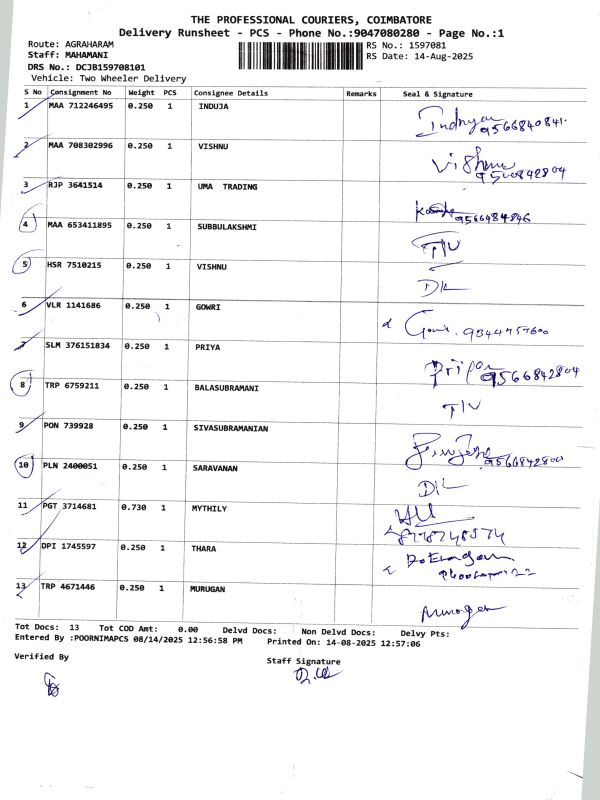 THE PROFESSIONAL COURIERS, COIMBATORE
Delivery Runsheet - PCS - Phone No.:9047080280 - Page No.:1
Route: AGRAHARAM RS No.: 1597081
Staff: MAHAMANI RS Date: 14-Aug-2025
DRS No.: DCJB159708101
Vehicle: Two Wheeler Delivery
S No Consignment No Weight PCS Consignee Details Remarks Seal & Signature
1 MAA 712246495 0.250 1 INDUJA
9566840841
2 MAA 708302996 0.250 1 VISHNU Vishnu
3 RJP 3641514 0.250 1 UMA TRADING
4 MAA 653411895 0.250 1 SUBBULAKSHMI
5 HSR 7510215 0.250 1 VISHNU DL
6 VLR 1141686 0.250 1 GOWRI
9344757600
7 SLM 376151834 0.250 1 PRIYA
9566842804
8 TRP 6759211 0.250 1 BALASUBRAMANI
9 PON 739928 0.250 1 SIVASUBRAMANIAN
10 PLN 2400051 0.250 1 SARAVANAN DL
11 PGT 3714681 0.730 1 MYTHILY
12 DPI 1745597 0.250 1 THARA
13 TRP 4671446 0.250 1 MURUGAN Murugan
Tot Docs: 13 Tot COD Amt: 0.00 Delvd Docs: Non Delvd Docs: Delvy Pts:
Entered By :POORNIMAPCS 08/14/2025 12:56:58 PM Printed On: 14-08-2025 12:57:06
Verified By Staff Signature